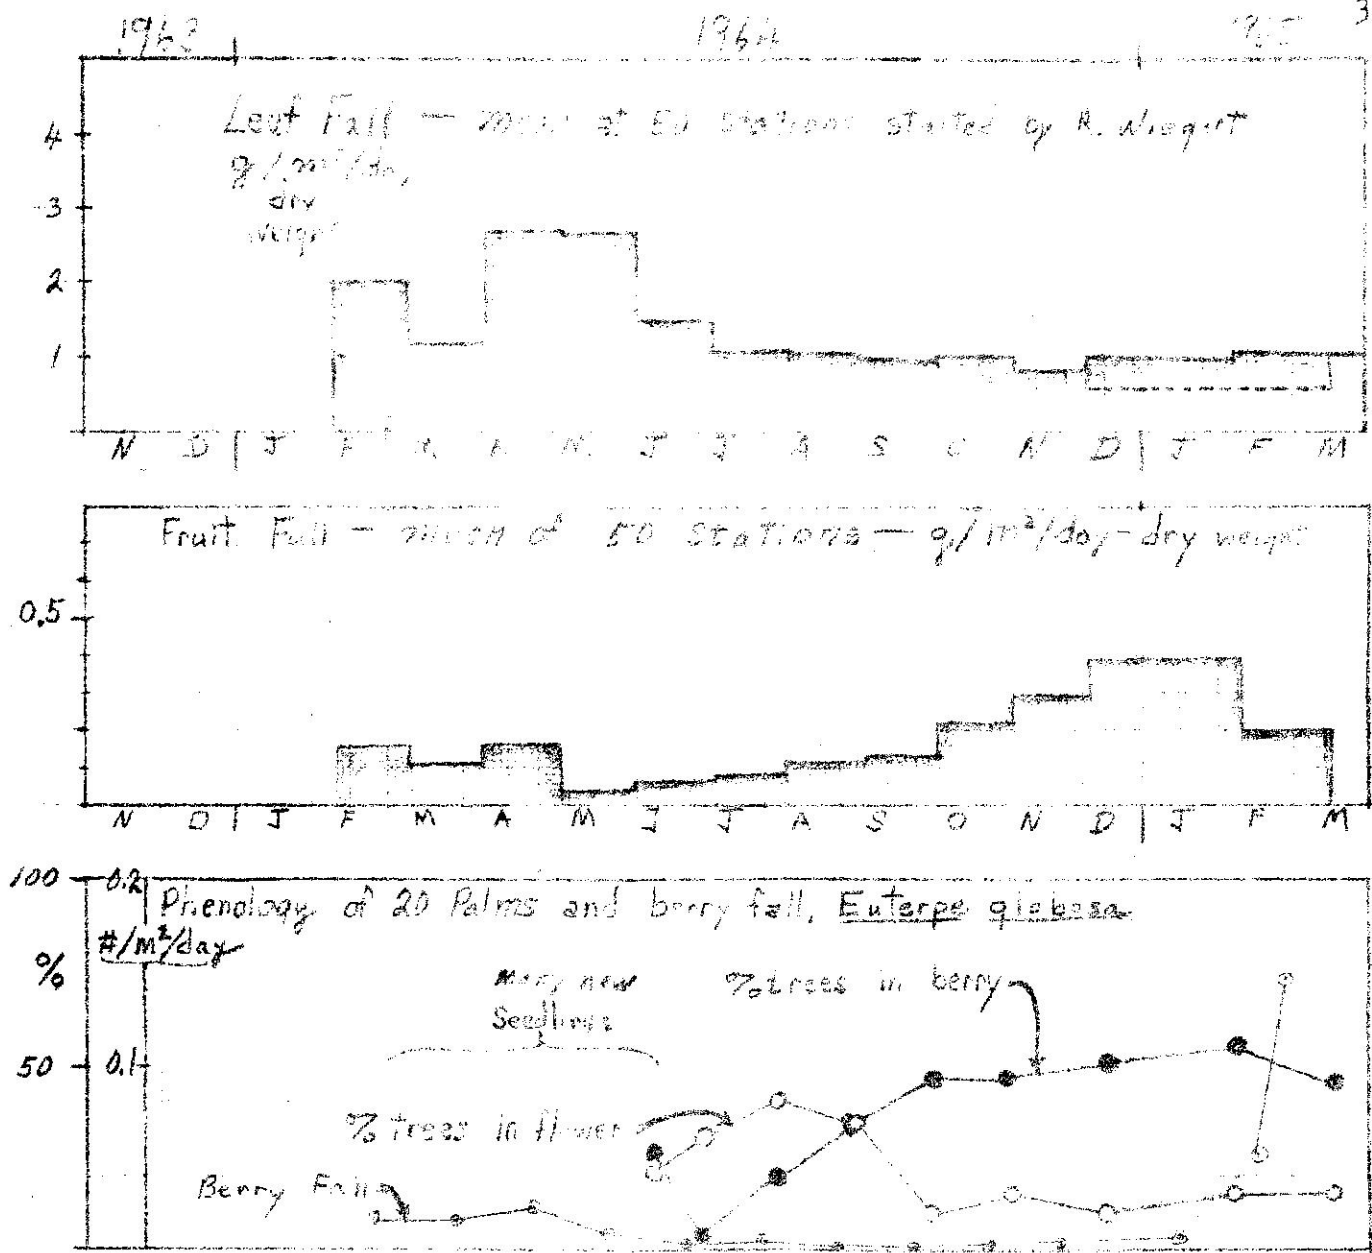 3
1963 1964
Leaf Fall — at 50 Stations started by R. Wiegert
g/m²/da,
dry
weight
4
3
2
1
N D | J F M A M J J A S O N D | J F M
Fruit Fall — mean of 50 Stations — g/m²/day-dry weight
0.5
N D | J F M A M J J A S O N D | J F M
100 0.2 Phenology of 20 Palms and berry fall, Euterpe globosa
#/M²/day
%
Many new % trees in berry
Seedlings
50 0.1
% trees in flower
Berry Fall